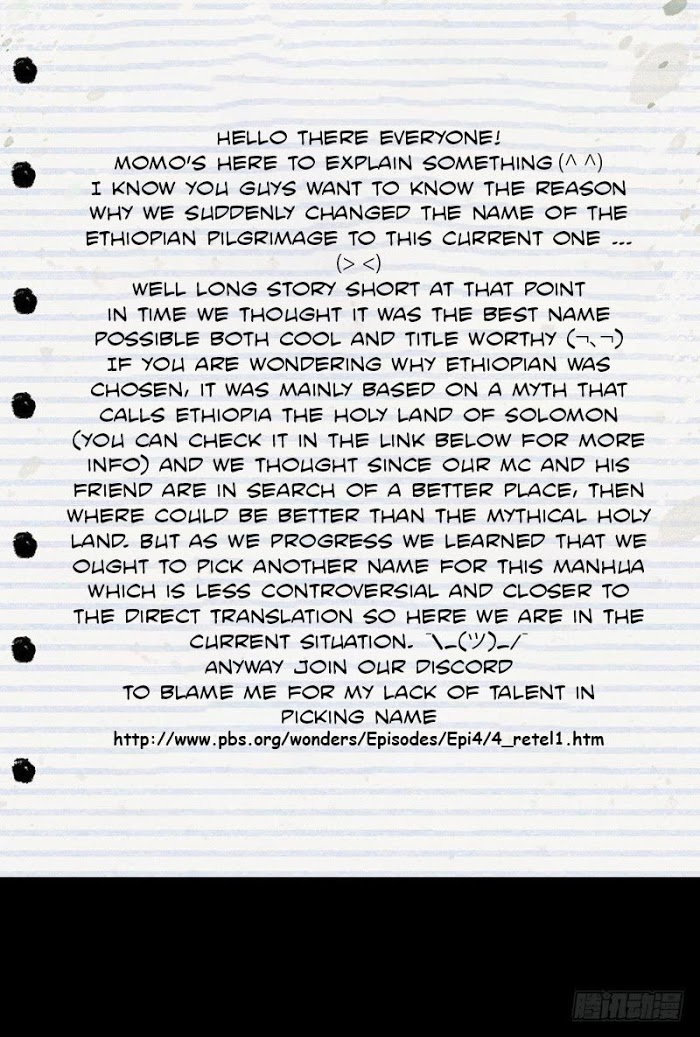 HELLO THERE EVERYONE!
MOMO'S HERE TO EXPLAIN SOMETHING (^ ^)
I KNOW YOU GUYS WANT TO KNOW THE REASON
WHY WE SUDDENLY CHANGED THE NAME OF THE
ETHIOPIAN PILGRIMAGE TO THIS CURRENT ONE ...
(> <)
WELL LONG STORY SHORT AT THAT POINT
IN TIME WE THOUGHT IT WAS THE BEST NAME
POSSIBLE BOTH COOL AND TITLE WORTHY (¬､¬)
IF YOU ARE WONDERING WHY ETHIOPIAN WAS
CHOSEN, IT WAS MAINLY BASED ON A MYTH THAT
CALLS ETHIOPIA THE HOLY LAND OF SOLOMON
(YOU CAN CHECK IT IN THE LINK BELOW FOR MORE
INFO) AND WE THOUGHT SINCE OUR MC AND HIS
FRIEND ARE IN SEARCH OF A BETTER PLACE, THEN
WHERE COULD BE BETTER THAN THE MYTHICAL HOLY
LAND. BUT AS WE PROGRESS WE LEARNED THAT WE
OUGHT TO PICK ANOTHER NAME FOR THIS MANHUA
WHICH IS LESS CONTROVERSIAL AND CLOSER TO
THE DIRECT TRANSLATION SO HERE WE ARE IN THE
CURRENT SITUATION. ¯\_(ツ)_/¯
ANYWAY JOIN OUR DISCORD
TO BLAME ME FOR MY LACK OF TALENT IN
PICKING NAME
http://www.pbs.org/wonders/Episodes/Epi4/4_retel1.htm
腾讯动漫